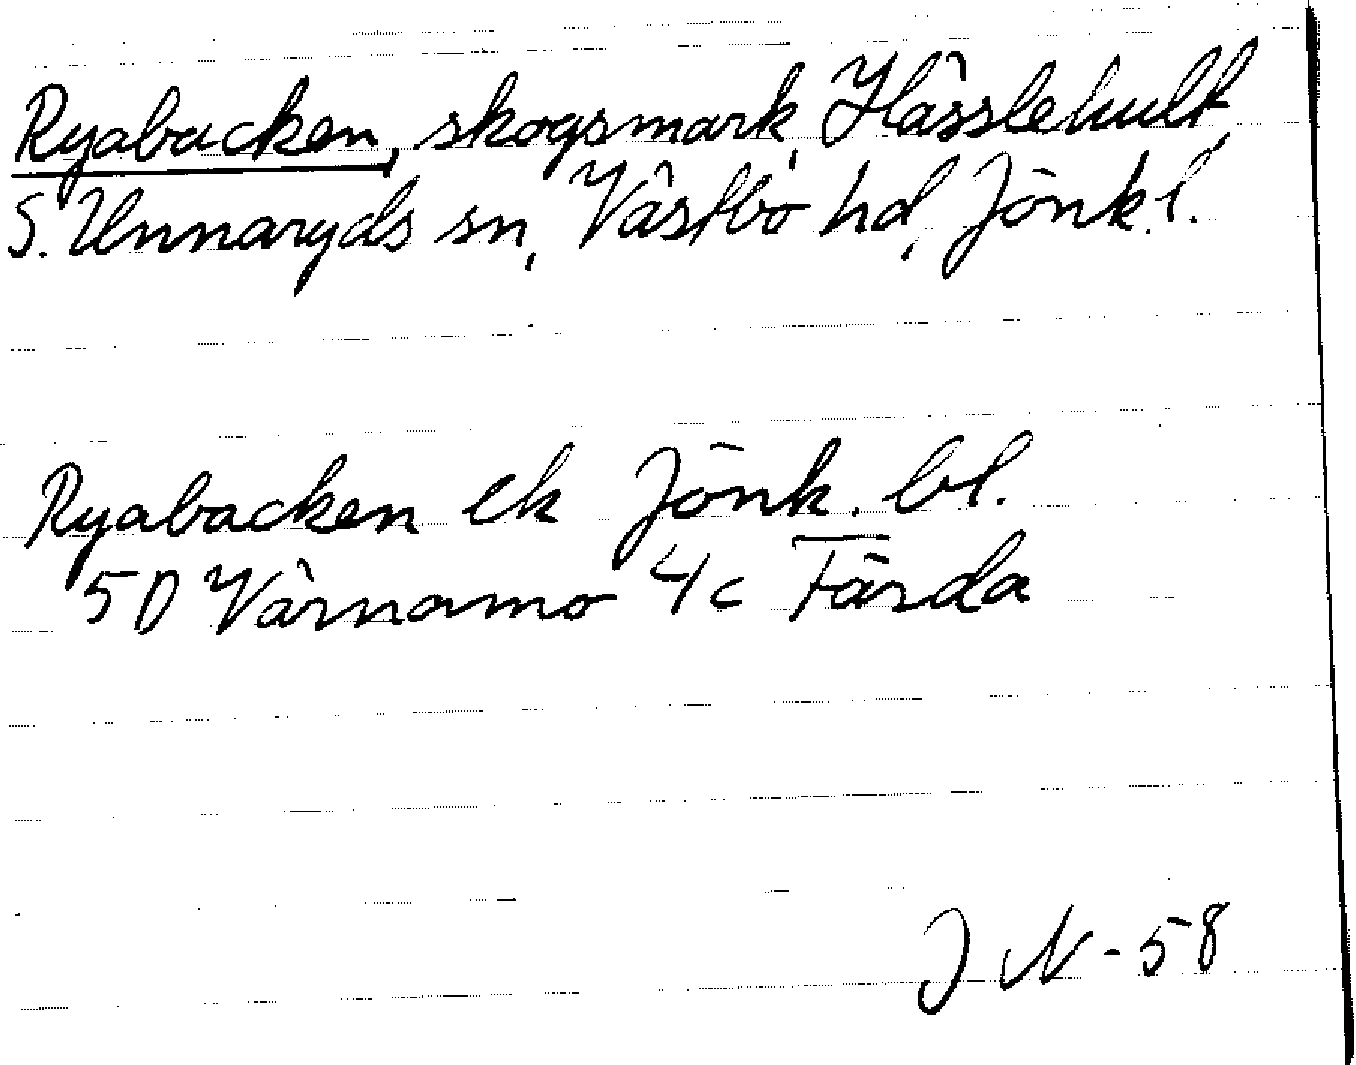 Ryabacken, skogsmark, Hässlehult,
S. Unnaryds sn, Västbo hd, Jönk. l.
Ryabacken ek Jönk. bl.
5D Värnamo 4c Färda
J N-58